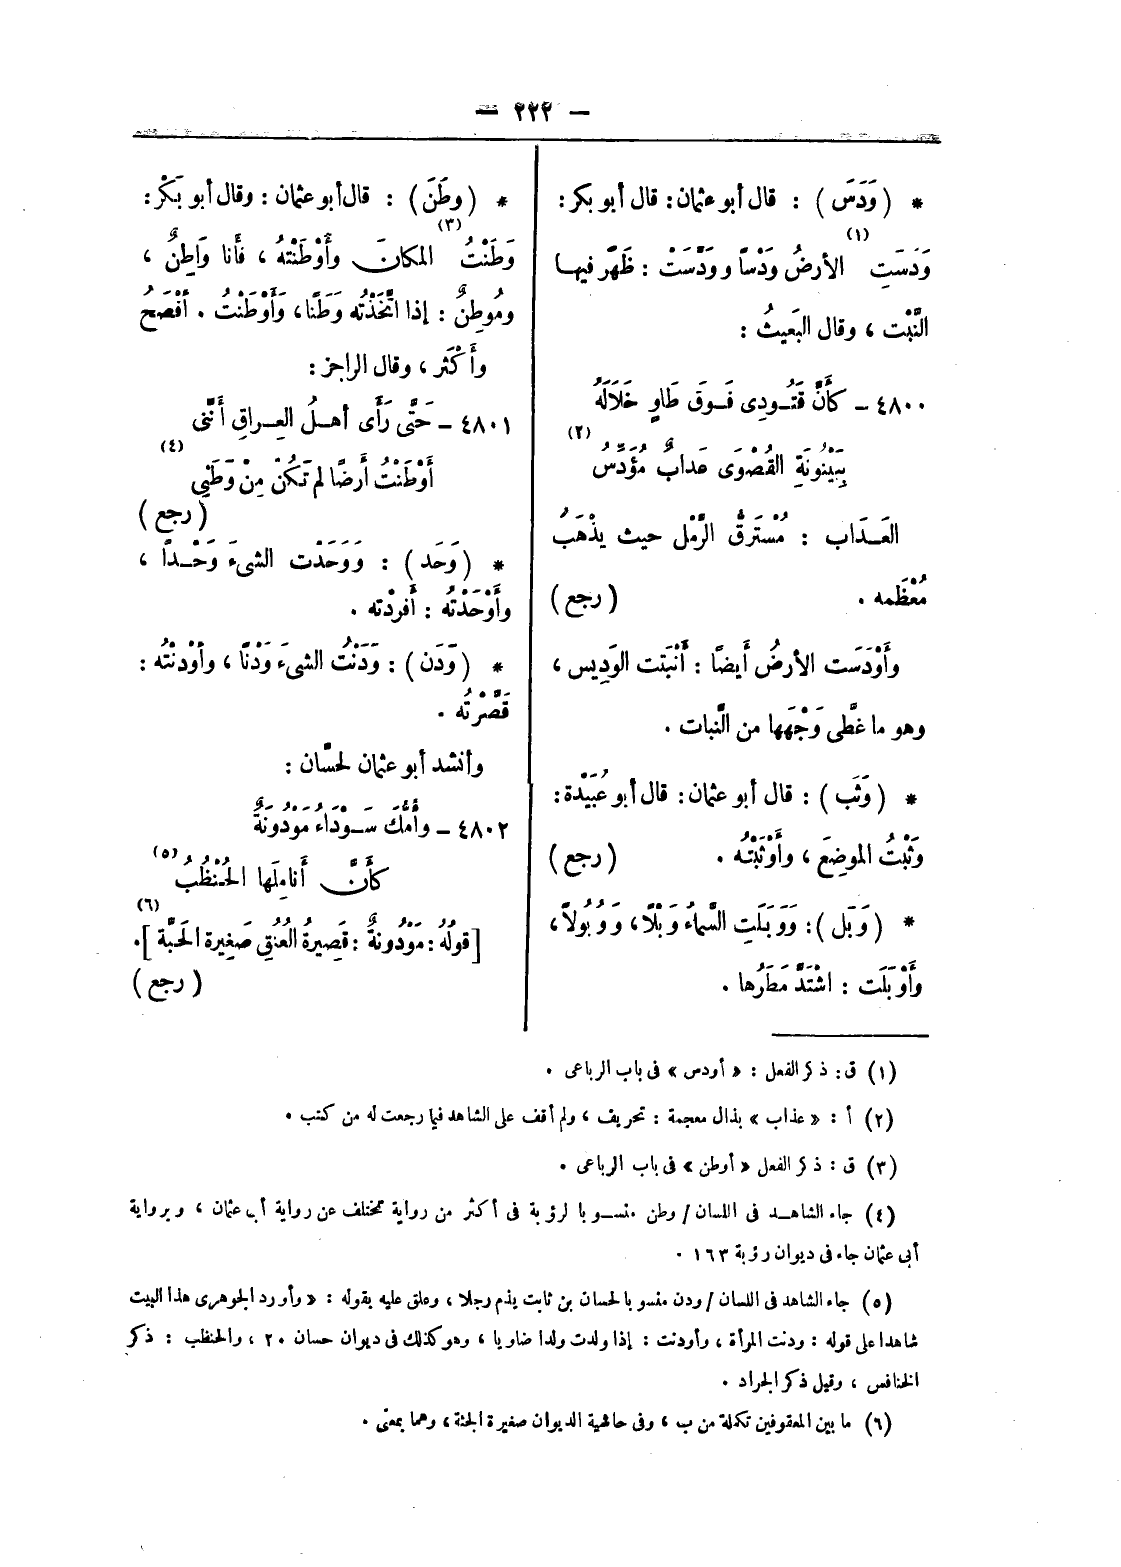 — ٢٢٢ —
* ( وَدَسَ ) : قال أبو عثمان : قال أبو بكر :
وَدَسَتِ (١) الأرضُ وَدْسًا وودَّسَتْ : ظَهَر فيها
النَّبْت ، وقال البَعيثُ :
٤٨٠٠ – كأنَّ قَتُودِى فَوقَ طَاوٍ خَلَالَهُ
بِبَيْنُونَةِ القُصْوَى عَدابٌ مُوَدَّسُ (٢)
العَدَاب : مُسْتَرقُّ الرَّمْل حيث يذْهَبُ
مُعْظَمه . ( رجع )
وأَوْدَسَت الأرضُ أيضًا : أَنْبَتت الوَدِيس ،
وهو ما غَطَّى وَجْهَها من النَّبات .
* ( وَثَب ) : قال أبو عثمان : قال أبو عُبَيْدة :
وَثَبْتُ الموضِعَ ، وأَوْثَبْتُه . ( رجع )
* ( وَبَل ) : وَوَبَلَتِ السَّماءُ وَبْلًا ، وَوُبُولاً ،
وأَوْبَلَت : اشْتَدَّ مَطَرُها .
* ( وطَنَ ) : قال أبو عثمان : وقال أبو بَكْر :
وَطَنْتُ (٣) المكانَ وأَوْطَنْتهُ ، فأنا وَاطِنٌ ،
ومُوطِنٌ : إذا اتَّخَذْتُه وَطَنًا ، وَأَوْطَنْتُ . أفْصَحُ
وأَكْثَر ، وقال الراجز :
٤٨٠١ – حَتَّى رَأَى أهلُ العِراقِ أَنَّنى
أَوْطَنْتُ أرضًا لم تَكُنْ مِنْ وَطَنِى (٤)
( رجع )
* ( وَحَد ) : وَوَحَدْت الشىءَ وَحْدًا ،
وأَوْحَدْتُه : أَفردْته .
* ( وَدَن ) : وَدَنْتُ الشىءَ ودْنًا ، وأودَنْتُه :
قَصَّرْتُه .
وأنشد أبو عثمان لحسَّان :
٤٨٠٢ – وأمُّكَ سَوْدَاءُ مَوْدُونَةٌ
كأَنَّ أَنامِلَها الحُنْظُبُ (٥)
[ قولُه : مَوْدُونةٌ : قَصِيرةُ العُنُقِ صَغِيرة الجُثَّة ] (٦) .
( رجع )
(١) ق : ذكر الفعل : « أودس » فى باب الرباعى .
(٢) أ : « عذاب » بذال معجمة : تحريف ، ولم أقف على الشاهد فيما رجعت له من كتب .
(٣) ق : ذكر الفعل « أوطن » فى باب الرباعى .
(٤) جاء الشاهد فى اللسان / وطن منسوبا لرؤبة فى أكثر من رواية تختلف عن رواية أبى عثمان ، وبرواية
أبى عثمان جاء فى ديوان رؤبة ١٦٣ .
(٥) جاء الشاهد فى اللسان / ودن منسوبا لحسان بن ثابت يذم رجلا ، وعلق عليه بقوله : « وأورد الجوهرى هذا البيت
شاهدا على قوله : ودنت المرأة ، وأودنت : إذا ولدت ولدا ضاويا ، وهو كذلك فى ديوان حسان ٢٠ ، والحنظب : ذكر
الخنافس ، وقيل ذكر الجراد .
(٦) ما بين المعقوفين تكملة من ب ، وفى حاشية الديوان صغيرة الجثة ، وهما بمعنى .